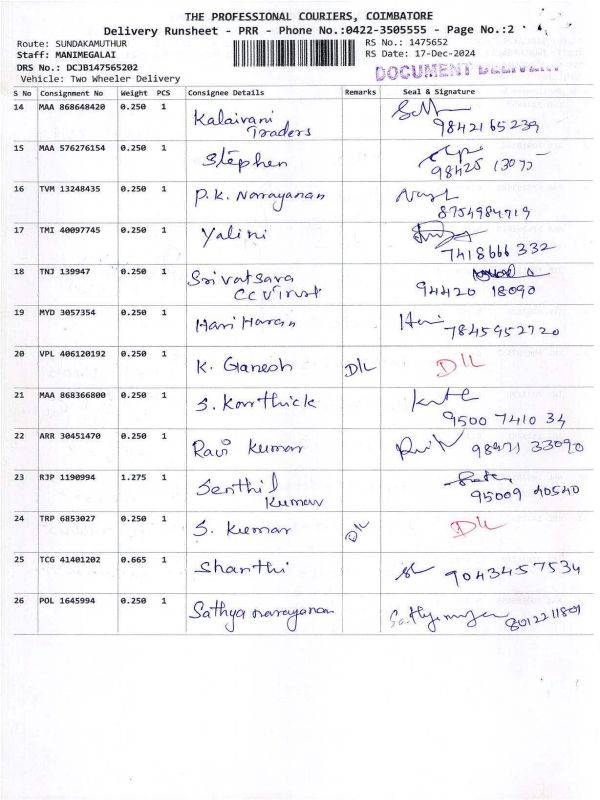 THE PROFESSIONAL COURIERS, COIMBATORE
Delivery Runsheet - PRR - Phone No.:0422-3505555 - Page No.:2
Route: SUNDAKAMUTHUR RS No.: 1475652
Staff: MANIMEGALAI RS Date: 17-Dec-2024
DRS No.: DCJB147565202
DOCUMENT DELIVERY
Vehicle: Two Wheeler Delivery
S No Consignment No Weight PCS Consignee Details Remarks Seal & Signature
14 MAA 868648420 0.250 1 Kalaivani
Traders 9842165239
15 MAA 576276154 0.250 1 Stephen 98425 13075
16 TVM 13248435 0.250 1 P.K. Narayanan
8754984719
17 TMI 40097745 0.250 1 Yalini
7418666 332
18 TNJ 139947 0.250 1 Srivatsava
CCVTrust 94420 18090
19 MYD 3057354 0.250 1 Hari Haran Hari 7845952720
20 VPL 406120192 0.250 1 K. Ganesh D/L D/L
21 MAA 868366800 0.250 1 S. Karthick
9500 7410 34
22 ARR 30451470 0.250 1 Ravi Kumar 98471 33090
23 RJP 1190994 1.275 1 Senthil
Kumar 95009 40540
24 TRP 6853027 0.250 1 S. Kumar D/L D/L
25 TCG 41401202 0.665 1 Shanthi 9043457534
26 POL 1645994 0.250 1 Sathya narayanan 8012211801